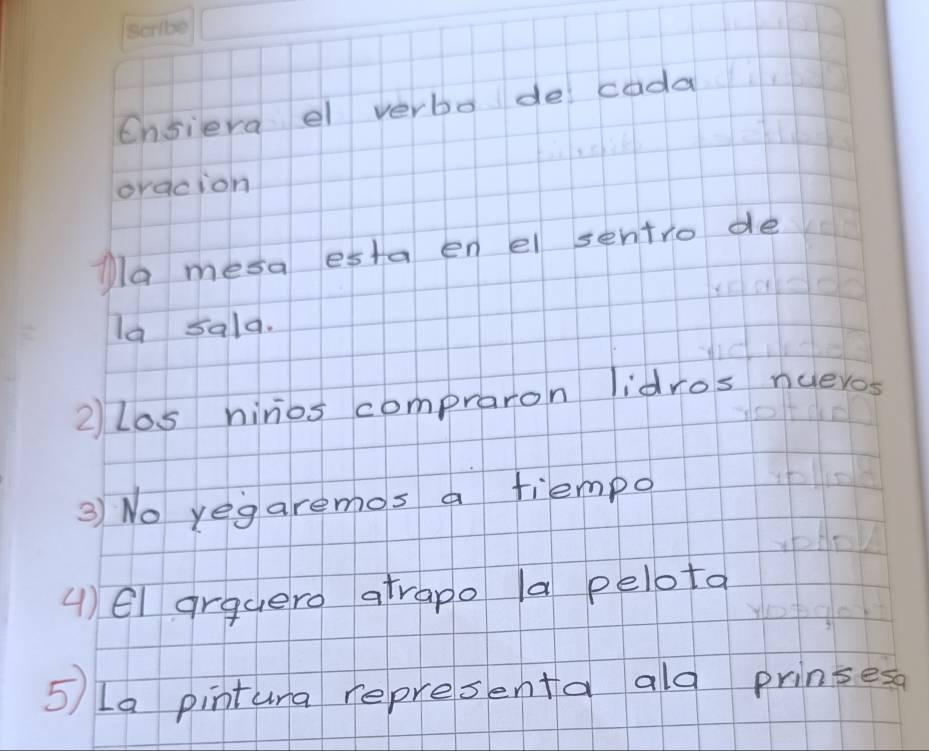 Scribe
Ensiera el verbo de cada
oracion
1) la mesa esta en el sentro de
la sala.
2) Los niños compraron lidros nuevos
3) No yegaremos a tiempo
4) El arquero atrapo la pelota
5) La pintura representa ala prinsesa